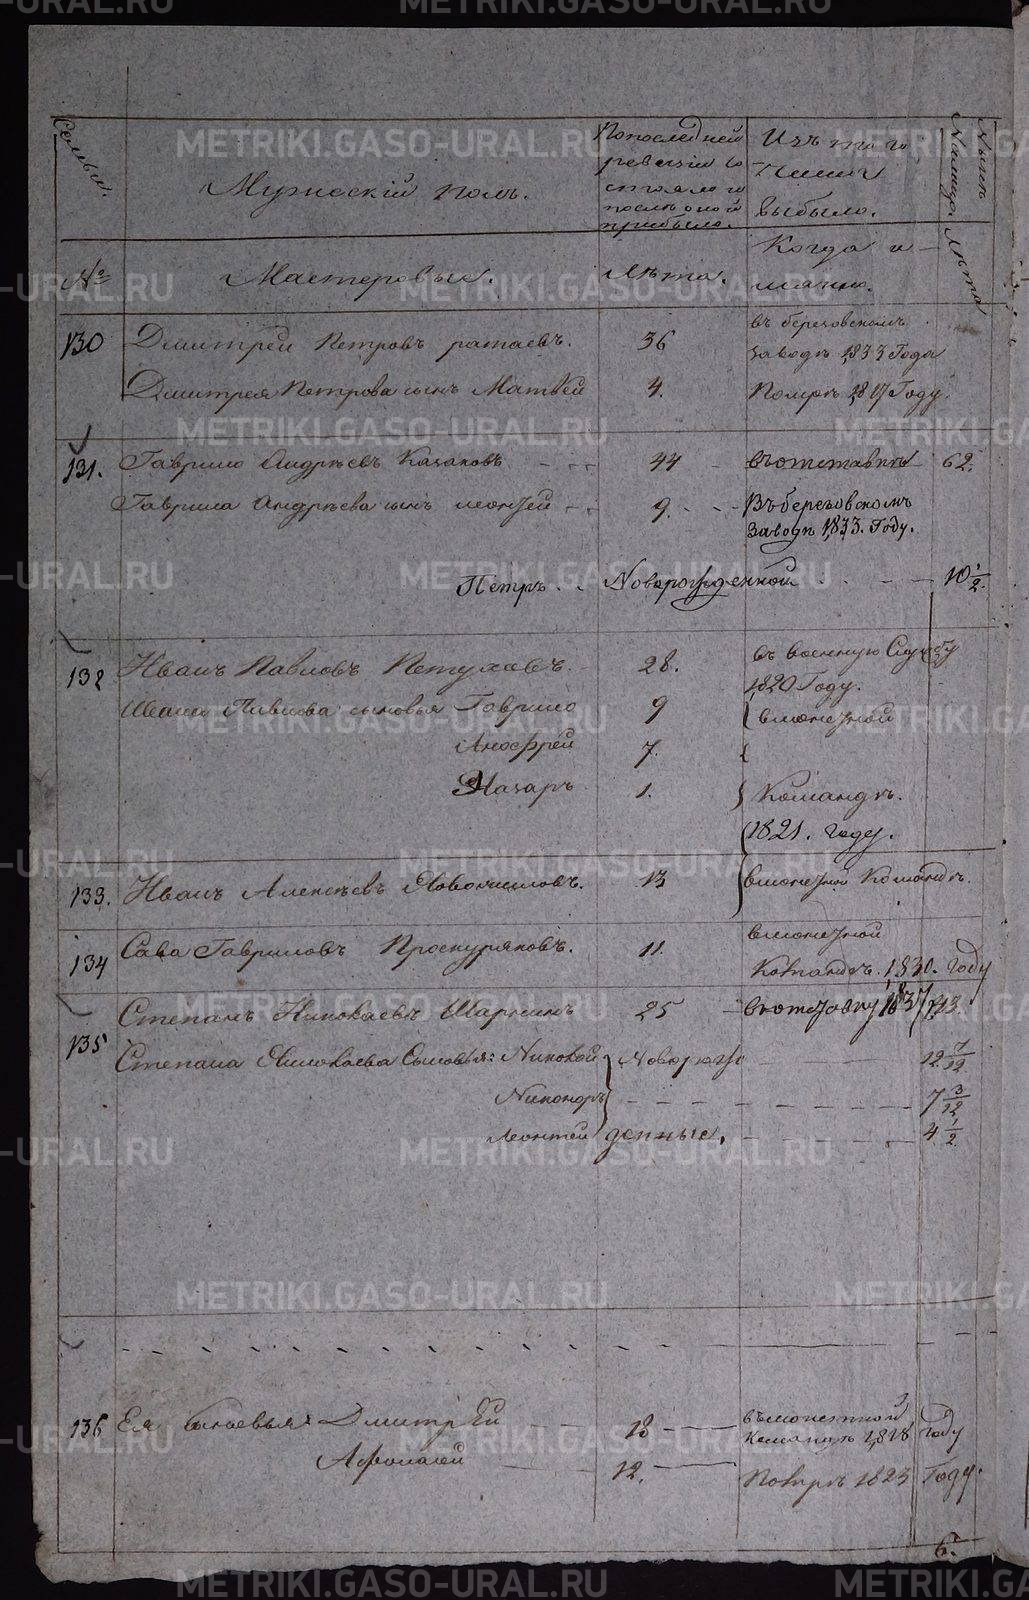 Семьи.
Мужескій полъ.
По последней
ревизіи со
стояло и
после оной
прибыло.
Изъ того
числа
выбыло.
Ныне
на лицо
№
Мастеровые.
Лѣта.
Когда и
имянно.
Лѣта
130 Дмитрей Петровъ 36
въ березовскомъ
заводѣ 1833 Года
Дмитрея Петрова сынъ Матвей 4. Помре 1817 Году.
131. Гаврило Андрѣевъ Казаковъ 44 въ отставке 62.
Гаврила Андрѣева сынъ 9. Въ березовскомъ
заводѣ 1833. Году.
Петръ Новорожденной 10 1/2.
132 Иванъ Павловъ Петуховъ 28. въ военную Службу
1820 Году.
Ивана Павлова сыновья Гаврило 9 в монетной
Аносфрей 7.
Назаръ 1. Командѣ.
1821. году.
133. Иванъ Алексѣевъ 13 в монетной Командѣ.
134 Сава Гавриловъ Проскуряковъ. 11. в монетной
Командѣ. 1830. Году
135 Степанъ Николаевъ Шаркинъ 25 1837 43.
Степана Николаева Сыновья: Николай Новорож 12 7/12
Никоноръ 7 3/12
Леонтей денные. 4 1/2
136 Ея сыновья: Дмитрей 18 въ монетной
командѣ 1818 Году
Афонасей 12. Помре 1823 Году.
6.
METRIKI.GASO-URAL.RU